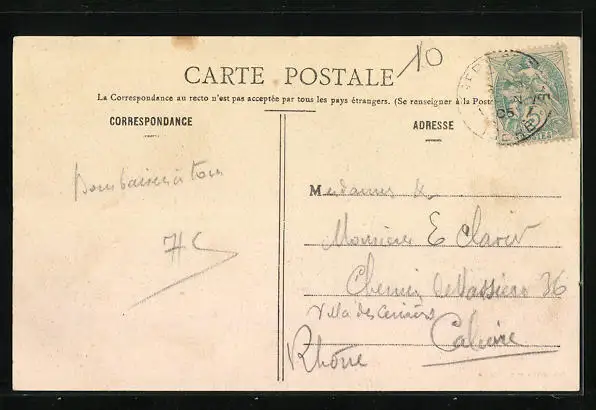 10
CARTE POSTALE
La Correspondance au recto n'est pas acceptée par tous les pays étrangers. (Se renseigner à la Poste
CORRESPONDANCE
ADRESSE
Bons baisers à tous
Mesdames &
Monsieur E Claret
Chemin de Vassieux 36
Villa des Cerisiers
Caluire
Rhône